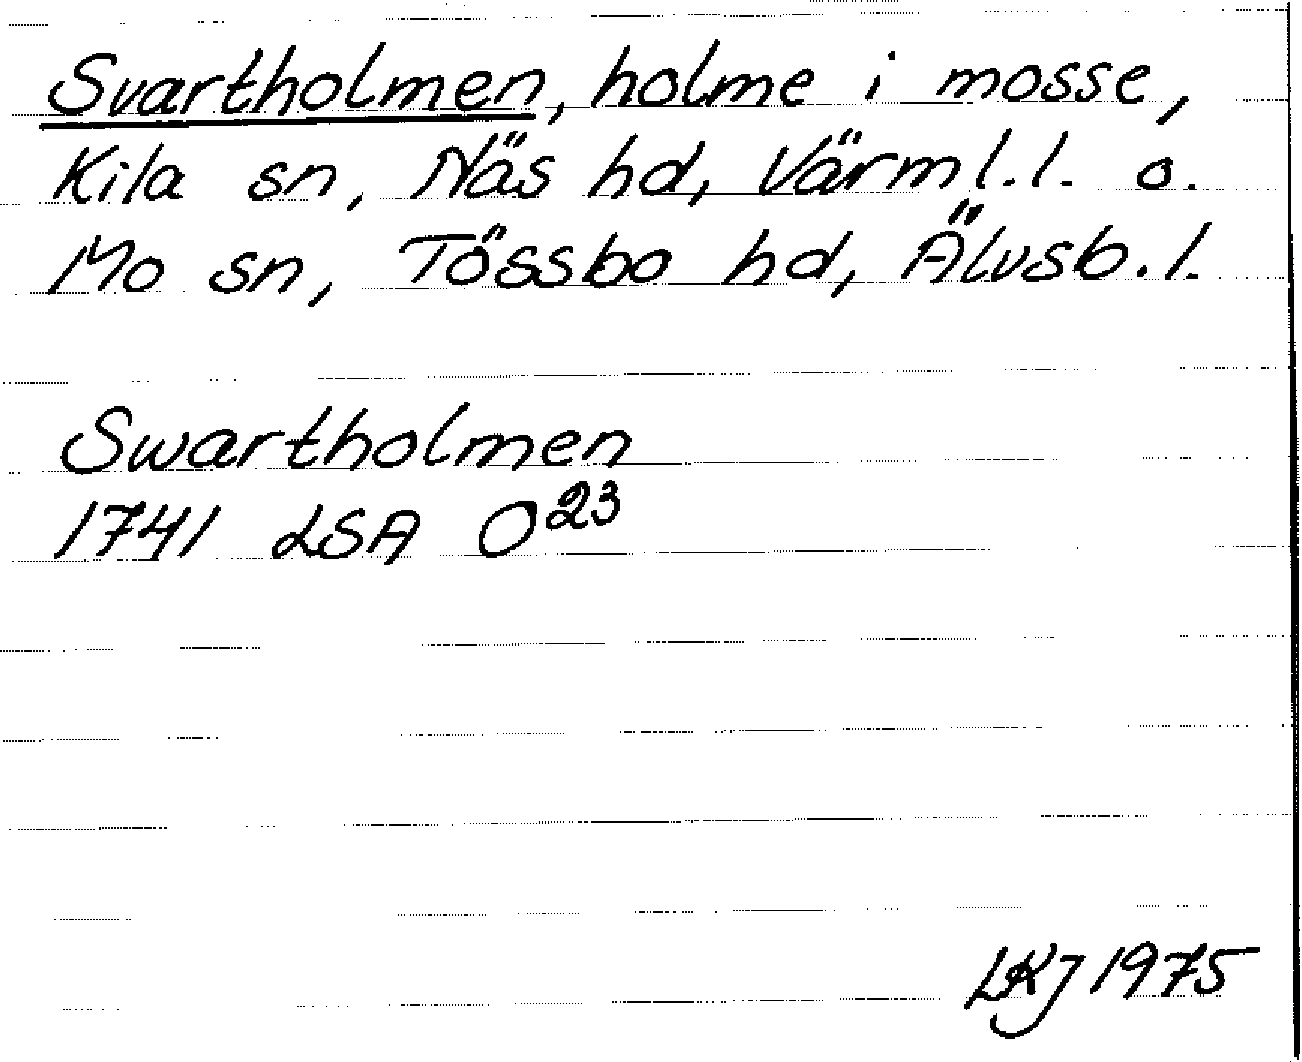 Svartholmen, holme i mosse,
Kila sn, Näs hd, Värml.l. o.
Mo sn, Tössbo hd, Älvsb.l.
Swartholmen
1741 LSA O23
LKJ 1975